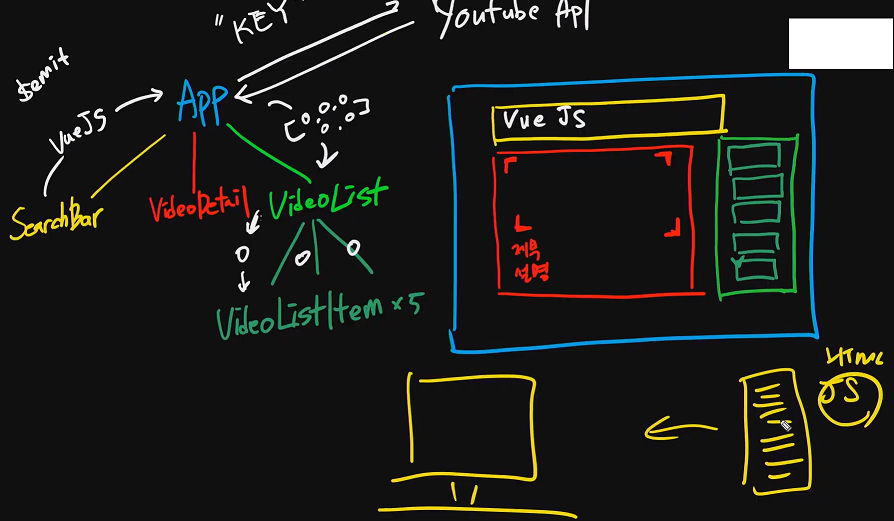 "KEY"
Youtube API
$emit
App
VueJS
SearchBar
VideoDetail
VideoList
VideoListItem × 5
Vue JS
제목
설명
HTML
JS